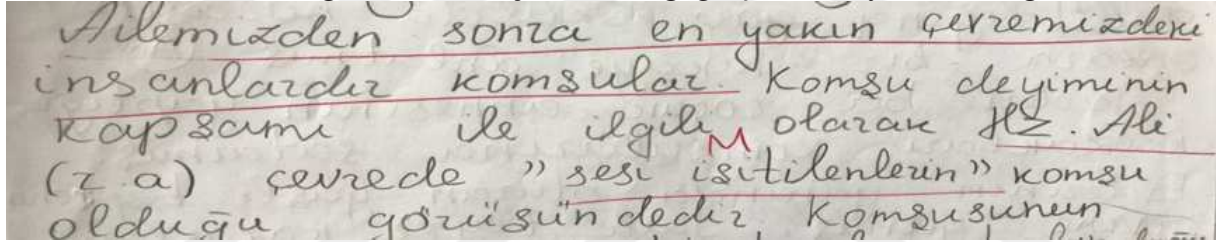 Ailemizden sonra en yakın çevremizdeki
insanlardır komşular. Komşu deyiminin
kapsamı ile ilgili olarak Hz. Ali
(r.a) çevrede "sesi işitilenlerin" komşu
olduğu görüşündedir Komşusunun